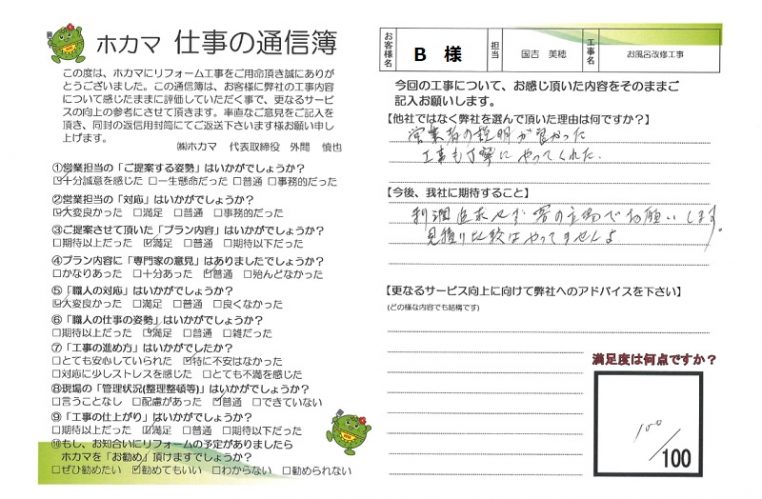 ホカマ 仕事の通信簿
この度は、ホカマにリフォーム工事をご用命頂き誠にありが
とうございました。この通信簿は、お客様に弊社の工事内容
について感じたままに評価していただく事で、更なるサービ
スの向上の参考にさせて頂きます。率直なご意見をご記入を
頂き、同封の返信用封筒にてご返送下さいます様お願い申し
上げます。
㈱ホカマ 代表取締役 外間 慎也
①営業担当の「ご提案する姿勢」はいかがでしょうか?
☑十分誠意を感じた □一生懸命だった □普通 □事務的だった
②営業担当の「対応」はいかがでしょうか?
☑大変良かった □満足 □普通 □事務的だった
③ご提案させて頂いた「プラン内容」はいかがでしょうか?
□期待以上だった ☑満足 □普通 □期待以下だった
④プラン内容に「専門家の意見」はありましたでしょうか?
□かなりあった □十分あった ☑普通 □殆んどなかった
⑤「職人の対応」はいかがでしょうか?
☑大変良かった □満足 □普通 □良くなかった
⑥「職人の仕事の姿勢」はいかがでしょうか?
□期待以上だった ☑満足 □普通 □雑だった
⑦「工事の進め方」はいかがでしたか?
□とても安心していられた ☑特に不安はなかった
□対応に少しストレスを感じた □とても不満を感じた
⑧現場の「管理状況(整理整頓等)」はいかがでしょうか?
□言うことなし □配慮があった ☑普通 □できていない
⑨「工事の仕上がり」はいかがでしょうか?
□期待以上だった ☑満足 □普通 □期待以下だった
⑩もし、お知合いにリフォームの予定がありましたら
ホカマを「お勧め」頂けますでしょうか?
□ぜひ勧めたい ☑勧めてもいい □わからない □勧められない
お客様名 B 様 担当 国吉 美穂 工事名 お風呂改修工事
今回の工事について、お感じ頂いた内容をそのままご
記入お願いします。
【他社ではなく弊社を選んで頂いた理由は何ですか?】
営業者の説明が良かった
工事も丁寧にやってくれた.
【今後、我社に期待すること】
利潤追求せず客の立場でお願いします。
見積り比較はやってませしよ
【更なるサービス向上に向けて弊社へのアドバイスを下さい】
(どの様な内容でも結構です)
満足度は何点ですか?
100
/100